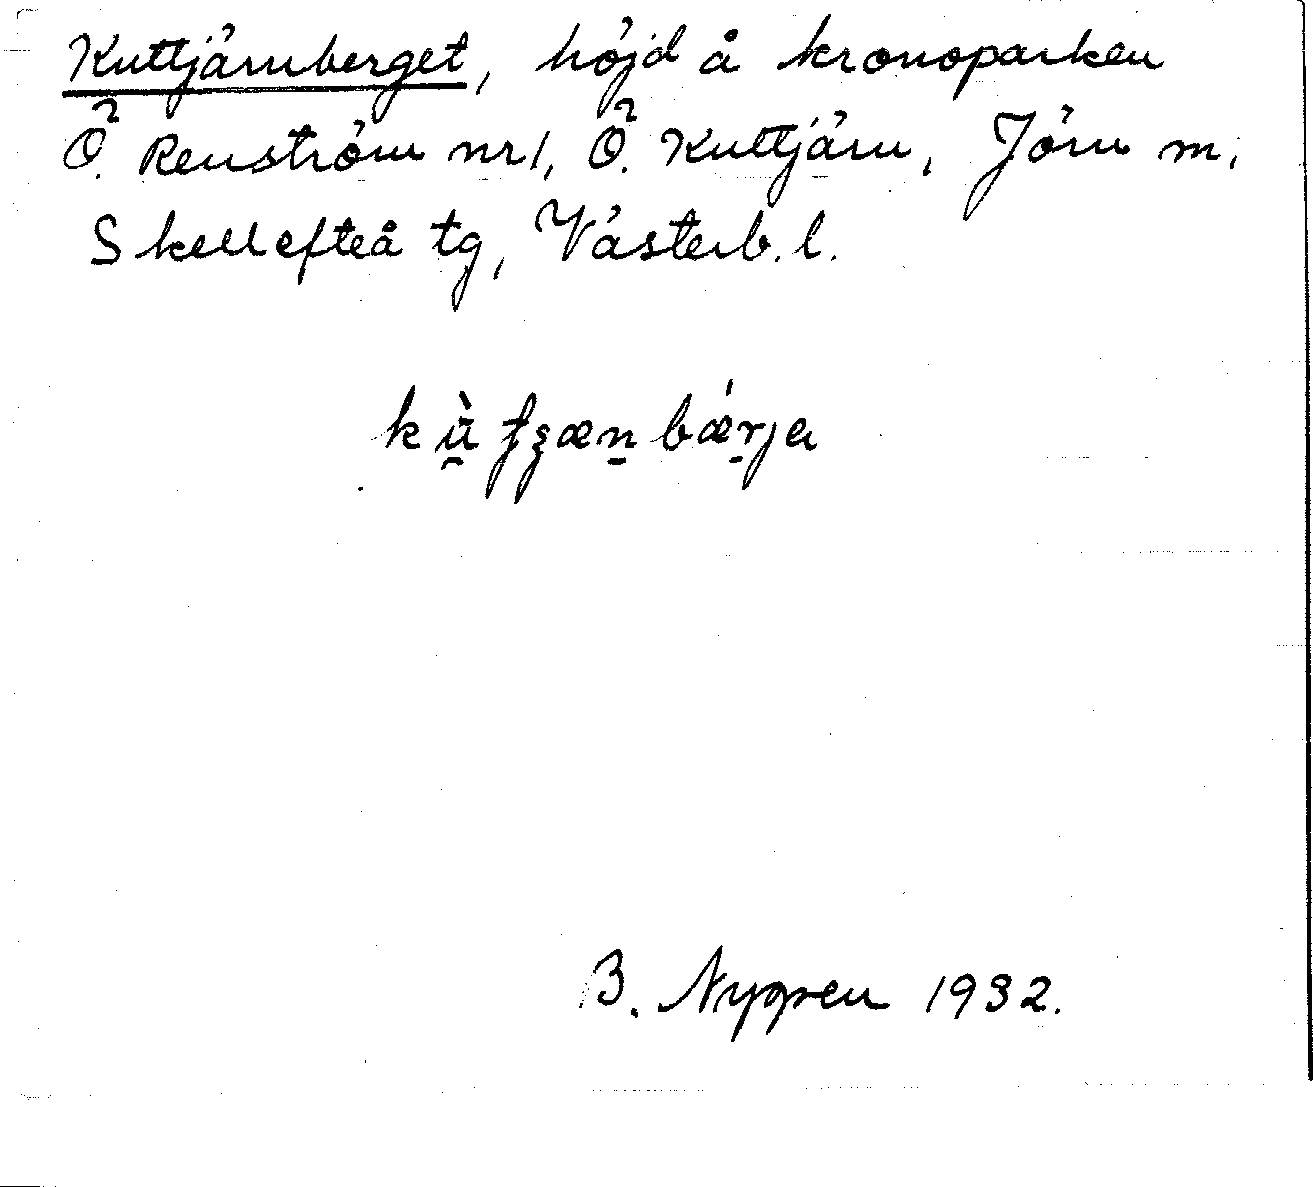 Kuttjärnberget, höjd å kronoparken
Ö. Renström nr 1, Ö. Kuttjärn, Jörn m.
Skellefteå tg, Västerb. l.
B. Nygren 1932.